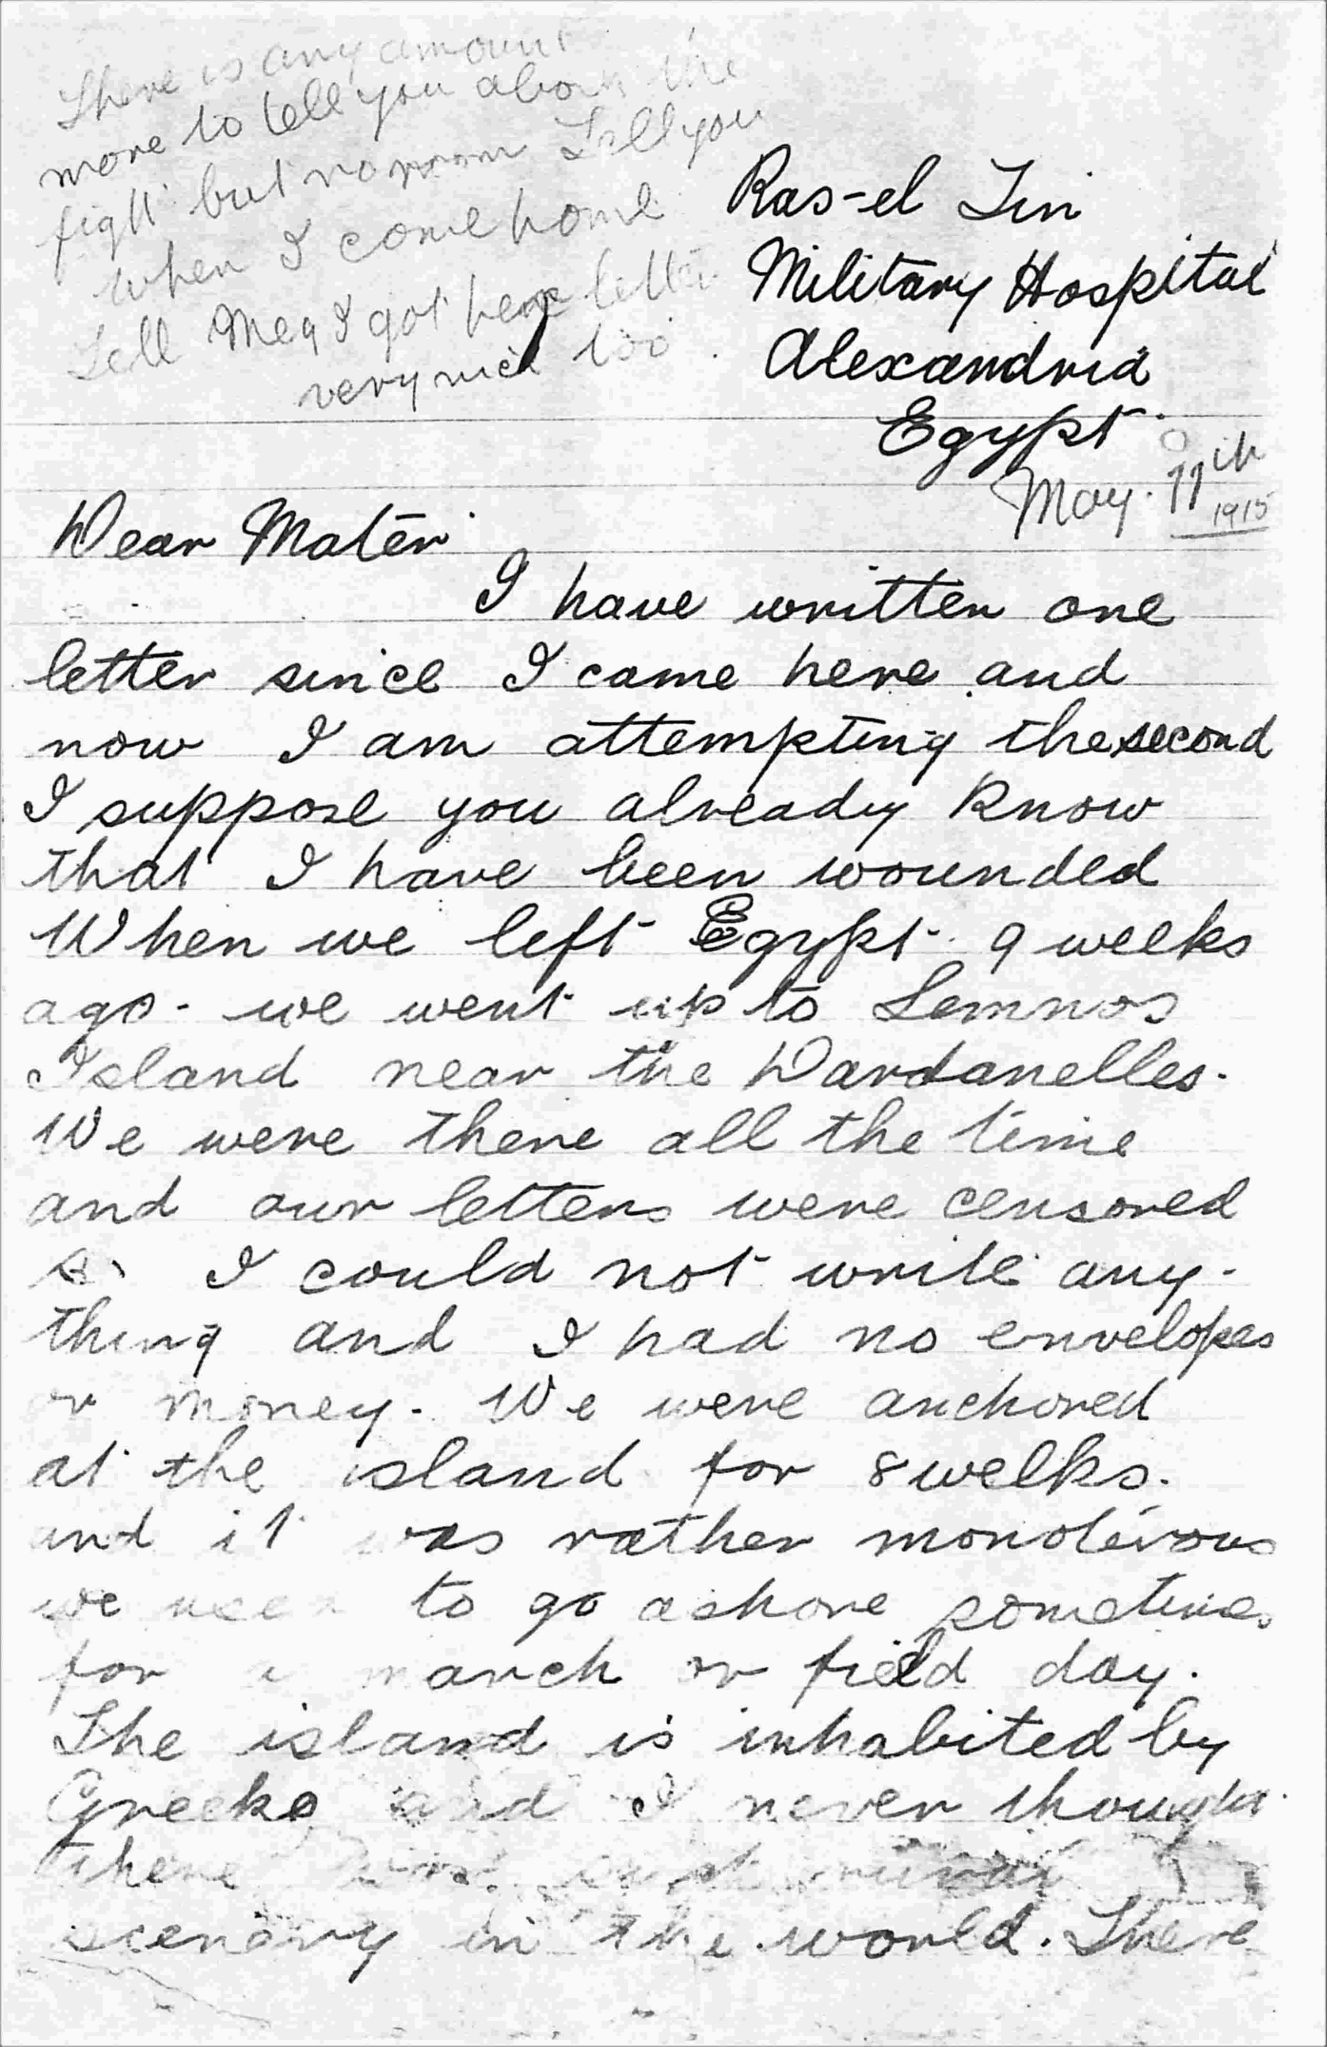 There is any amount
more to tell you about the
fight but no room Tell you
when I come home
Tell Meg I got her letter
very nice too.
Ras-el Tin
Military Hospital
Alexandria
Egypt.
May. 11th
1915
Dear Mater
I have written one
letter since I came here and
now I am attempting the second
I suppose you already know
that I have been wounded
When we left Egypt. 9 weeks
ago - we went up to Lemnos
Island near the Dardanelles.
We were there all the time
and our letters were censored
so I could not write any-
thing and I had no envelopes
or money. We were anchored
at the island for 8 weeks.
and it was rather monotinous
we used to go ashore sometimes
for a march or field day.
The island is inhabited by
Greeks and I never thought
there was such
scenery in the world. There